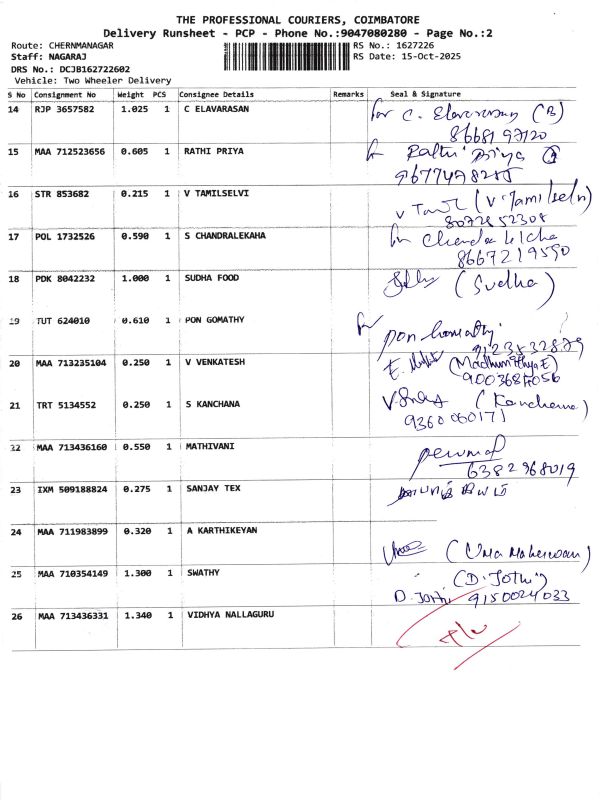 THE PROFESSIONAL COURIERS, COIMBATORE
Delivery Runsheet - PCP - Phone No.:9047080280 - Page No.:2
Route: CHERNMANAGAR RS No.: 1627226
Staff: NAGARAJ RS Date: 15-Oct-2025
DRS No.: DCJB162722602
Vehicle: Two Wheeler Delivery
S No Consignment No Weight PCS Consignee Details Remarks Seal & Signature
14 RJP 3657582 1.025 1 C ELAVARASAN for C. Elavarasan (B)
8668197120
15 MAA 712523656 0.605 1 RATHI PRIYA Rathi Priya
9677498285
16 STR 853682 0.215 1 V TAMILSELVI (V. Tamilselvi)
8072852308
17 POL 1732526 0.590 1 S CHANDRALEKAHA for Chandralekha
8667219590
18 PDK 8042232 1.000 1 SUDHA FOOD (Sudha)
19 TUT 624010 0.610 1 PON GOMATHY for Pon Gomathy
9123532879
20 MAA 713235104 0.250 1 V VENKATESH (Madhumithya E)
9003687056
21 TRT 5134552 0.250 1 S KANCHANA (Kanchana)
9360060171
22 MAA 713436160 0.550 1 MATHIVANI perumal
6382968019
23 IXM 509188824 0.275 1 SANJAY TEX
24 MAA 711983899 0.320 1 A KARTHIKEYAN (Uma Maheswari)
25 MAA 710354149 1.300 1 SWATHY (D. Jothi)
D. Jothi 9150024033
26 MAA 713436331 1.340 1 VIDHYA NALLAGURU